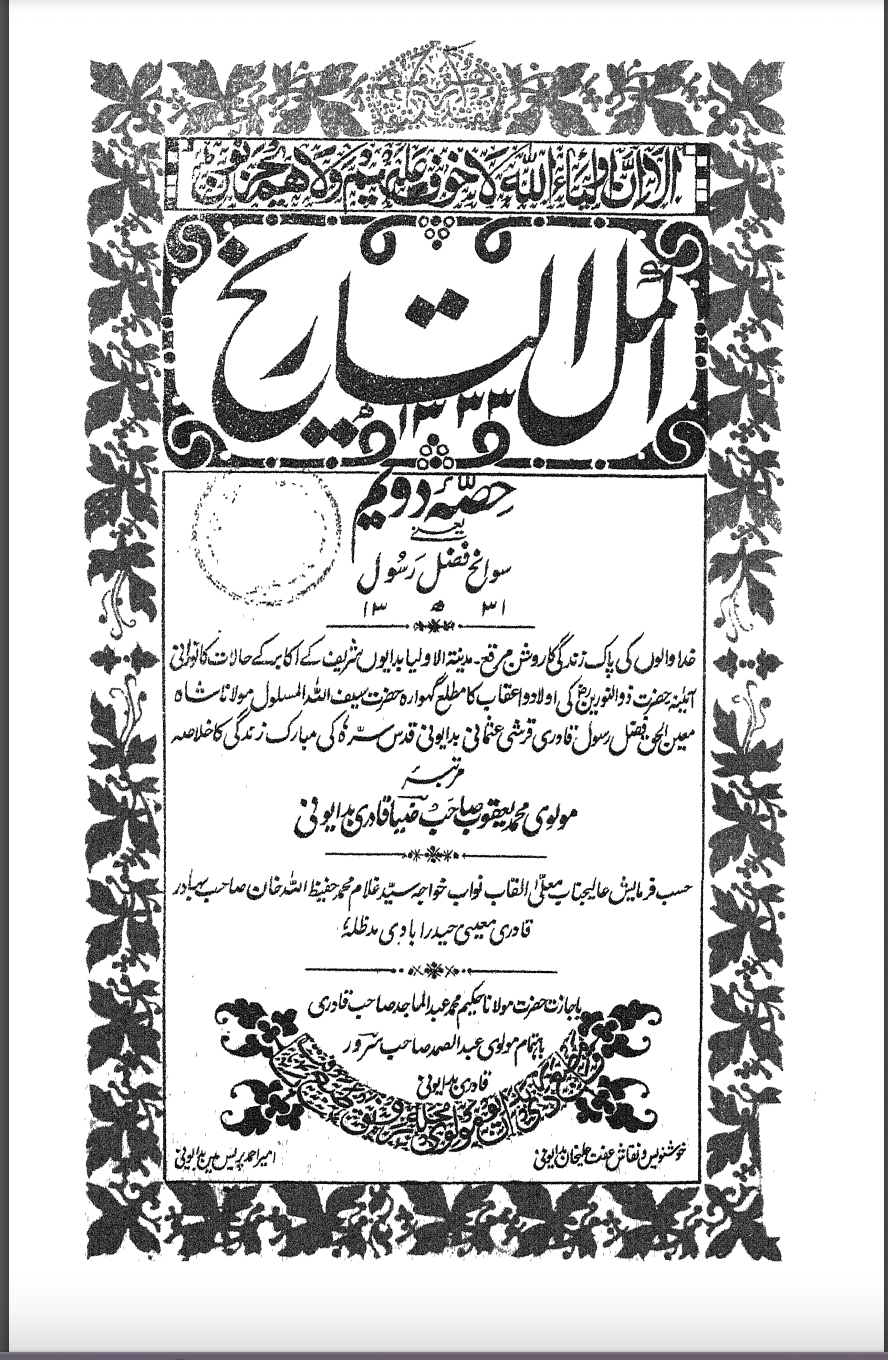 الا ان اولیاء الله لا خوف علیهم ولا هم یحزنون
اکمل التاریخ
۱۳۳۳ھ
حصّہٴ دویم
یعنے
سوانح فضل رسول
۱۳ ھ ۳۱
خدا والوں کی پاک زندگی کا روشن مرقع۔ مدینۃ الاولیا بدایوں شریف کے اکابر کے حالات کا نورانی
آئینہ حضرت ذوالنورینؓ کی اولاد و اعقاب کا مطلع گہوارہ حضرت سیف اللہ المسلول مولانا شاہ
معین الحق فضل رسول قادری قرشی عثمانی بدایونی قدس سرہٗ کی مبارک زندگی کا خلاصہ
مرتبہٴ
مولوی محمد یعقوب صاحب ضیا قادری بدایونی
حسب فرمایش عالیجناب معلّیٰ القاب نواب خواجہ سیّد غلام محمد حفیظ اللہ خان صاحب بہادر
قادری معینی حیدرابادی مدظلہٗ
باجازت حضرت مولانا حکیم محمد عبدالماجد صاحب قادری
باہتمام مولوی عبدالصمد صاحب سرور
قادری بدایونی
خوشنویس و نقاش عفت علیخان بدایونی
امیر احمد پریس مین بدایونی